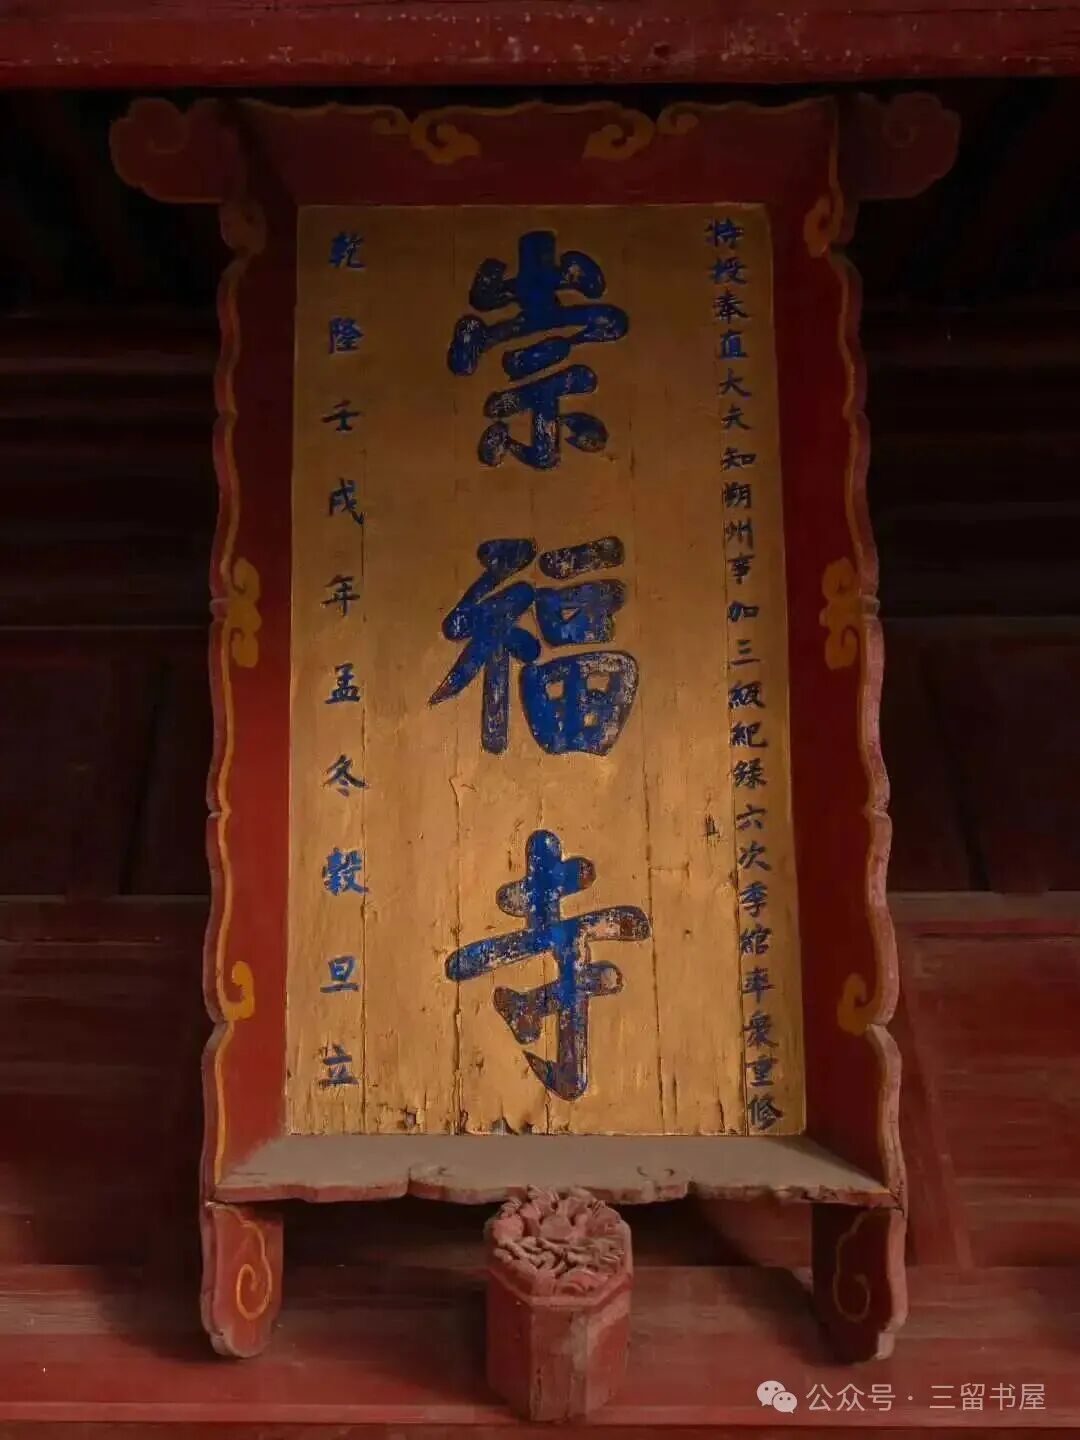 特授奉直大夫知朔州事加三級紀錄六次季綰率衆重修
崇福寺
乾隆壬戌年孟冬穀旦立
公众号 · 三留书屋